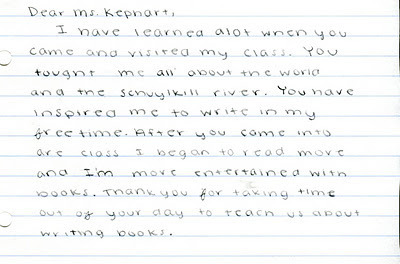 Dear Ms. Kephart,
I have learned alot when you
came and visited my class. You
tought me all about the world
and the schuylkill river. You have
inspired me to write in my
free time. After you came into
are class I began to read more
and I'm more entertained with
books. Thank you for taking time
out of your day to teach us about
writing books.